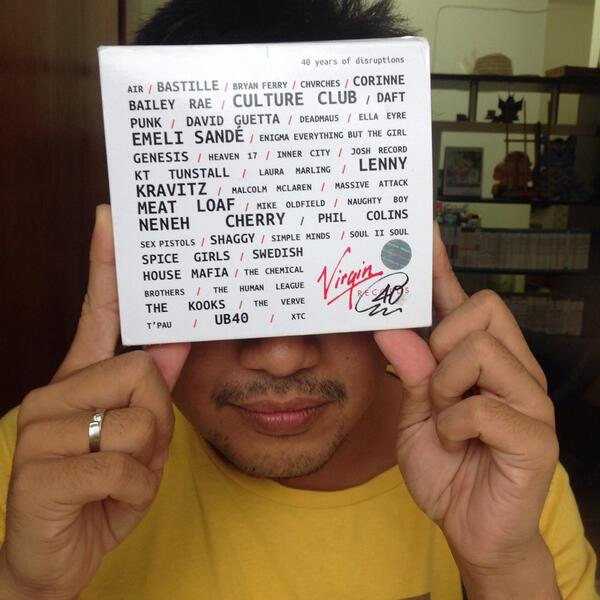 40 years of disruptions
AIR / BASTILLE / BRYAN FERRY / CHVRCHES / CORINNE
BAILEY RAE / CULTURE CLUB / DAFT
PUNK / DAVID GUETTA / DEADMAUS / ELLA EYRE
EMELI SANDÉ / ENIGMA EVERYTHING BUT THE GIRL
GENESIS / HEAVEN 17 / INNER CITY / JOSH RECORD
KT TUNSTALL / LAURA MARLING / LENNY
KRAVITZ / MALCOLM MCLAREN / MASSIVE ATTACK
MEAT LOAF / MIKE OLDFIELD / NAUGHTY BOY
NENEH CHERRY / PHIL COLINS
SEX PISTOLS / SHAGGY / SIMPLE MINDS / SOUL II SOUL
SPICE GIRLS / SWEDISH
HOUSE MAFIA / THE CHEMICAL
BROTHERS / THE HUMAN LEAGUE
THE KOOKS / THE VERVE
T'PAU / UB40 / XTC
Virgin
RECORDS
40